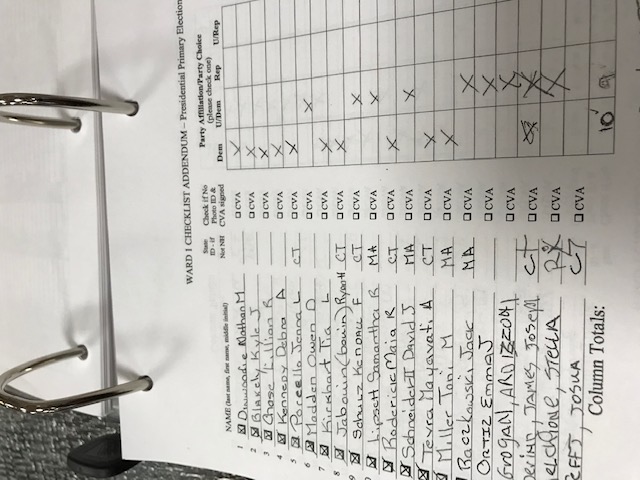 WARD 1 CHECKLIST ADDENDUM – Presidential Primary Election
NAME (last name, first name, middle initial) State ID - if Not NH Check if No Photo ID & CVA signed Party Affiliation/Party Choice (please check one)
Dem U/Dem Rep U/Rep
1 Nathan M □ CVA X
2 Blakely Kyle J □ CVA X
3 Chase Lillian R □ CVA X
4 Kennedy Debra A □ CVA X
5 Porcello Jenna L CT □ CVA X
6 Madden Owen D □ CVA X
7 Kirkhart Tia L □ CVA X
8 Jabouin (bowin) CT □ CVA X
9 Schulz Kendall F CT □ CVA X
0 Lipsett Samantha R MA □ CVA X
Roderick Maia R CT □ CVA X
Schneider II David J MA □ CVA X
Tevra Mayavati A CT □ CVA X
Miller Toni M MA □ CVA X
Raczkowski Jack MA □ CVA X
ORTIZ EMMA J □ CVA X
GROGAN, □ CVA X
JAMES JOSEPH CT □ CVA X
STELLA □ CVA X
JOSHUA CT □ CVA
Column Totals: 10